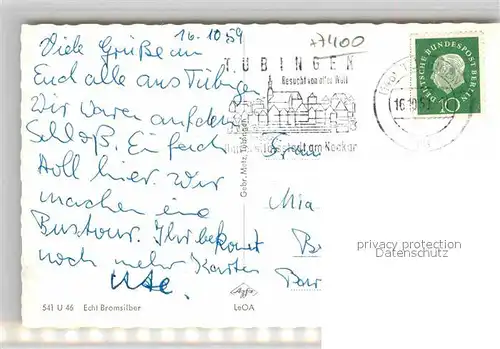 16.10.59
+7400
Viele Grüße an
Euch alle aus Tübingen
Wir waren auf dem
Schloß. Einfach
toll hier. Wir
machen eine
Bustour. Ihr bekommt
noch mehr Karten
Ute.
TÜBINGEN
Besucht von aller Welt
am Neckar
DEUTSCHE BUNDESPOST BERLIN
10
16.10.5
Gebr. Metz, Tübingen
Frau
Mia
privacy protection
Datenschutz
541 U 46 Echt Bromsilber
Agfa
LeOA